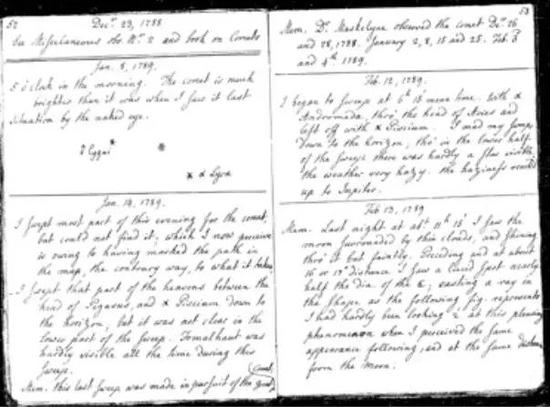 52
Decr. 23, 1788
See Miscellaneous obs. No. 2 and book on Comets
Jan. 8, 1789.
5 o'clock in the morning. The comet is much
brighter than it was when I saw it last
situation by the naked eye.
Cygni
α Lyra
Jan. 14, 1789.
I swept most part of this evening for the comet
but could not find it; which I now perceive
is owing to having marked the path in
the map, the contrary way, to what it
I swept that part of the heavens between the
head of Pegasus, and α Piscium down to
the horizon, but it was not clear in the
lower part of the sweep. Fomalhaut was
hardly visible all the time during this
sweep.
Mem. this last sweep was made in pursuit of the Comet
53
Mem. Dr. Maskelyne observed the comet Dec. 26
and 28, 1788. January 2, 8, 15 and 25. Feb. 3
and 4th 1789.
Feb. 12, 1789.
I began to sweep at 6h 15' mean time. With α
Andromeda, thro' the head of Aries and
left off with α Piscium. I made my sweeps
down to the horizon, tho' in the lower half
of the sweeps there was hardly a star visible,
the weather very hazy. the haziness reached
up to Jupiter.
Feb 13, 1789
Mem. Last night at abt 11h 15' I saw the
moon surrounded by thin clouds, and shining
thro' it but faintly. Preceding and at about
16 or 17° distance I saw a lucid spot nearly
half the dia. of the ☾, casting a ray in
the shape as the following fig. represents
I had hardly been looking at this pleasing
phenomenon when I perceived the same
appearance following, and at the same distance
from the Moon.